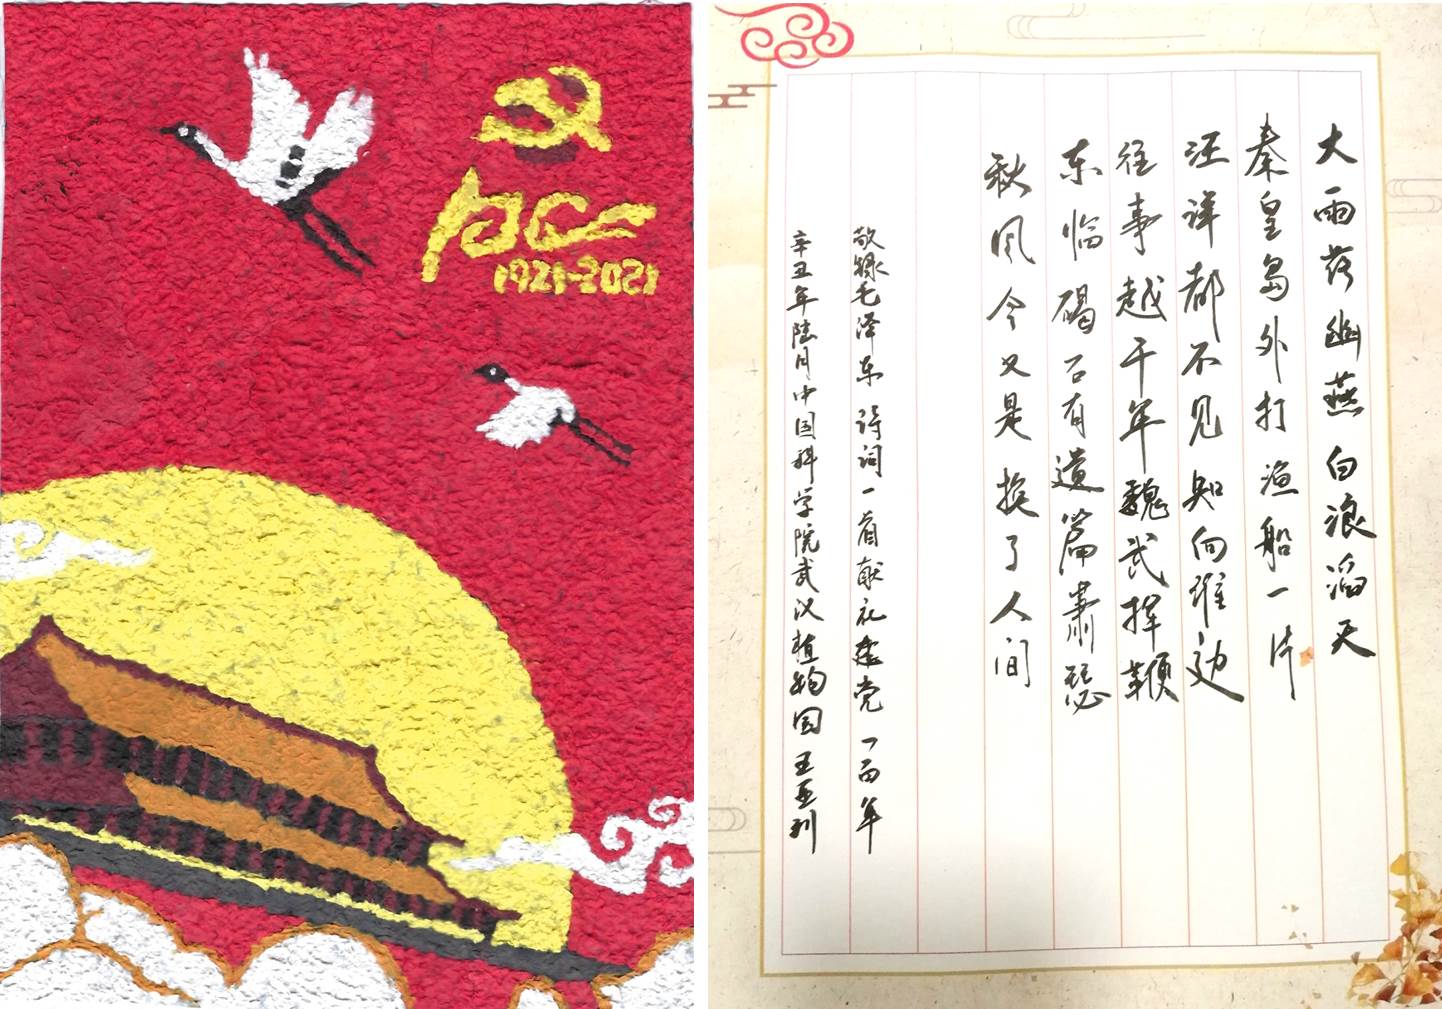 1921-2021
大雨落幽燕白浪滔天
秦皇岛外打渔船一片
汪洋都不见知向谁边
往事越千年魏武挥鞭
东临碣石有遗篇萧瑟
秋风今又是换了人间
敬录毛泽东诗词一首献礼建党一百年
辛丑年陆月中国科学院武汉植物园王亚利